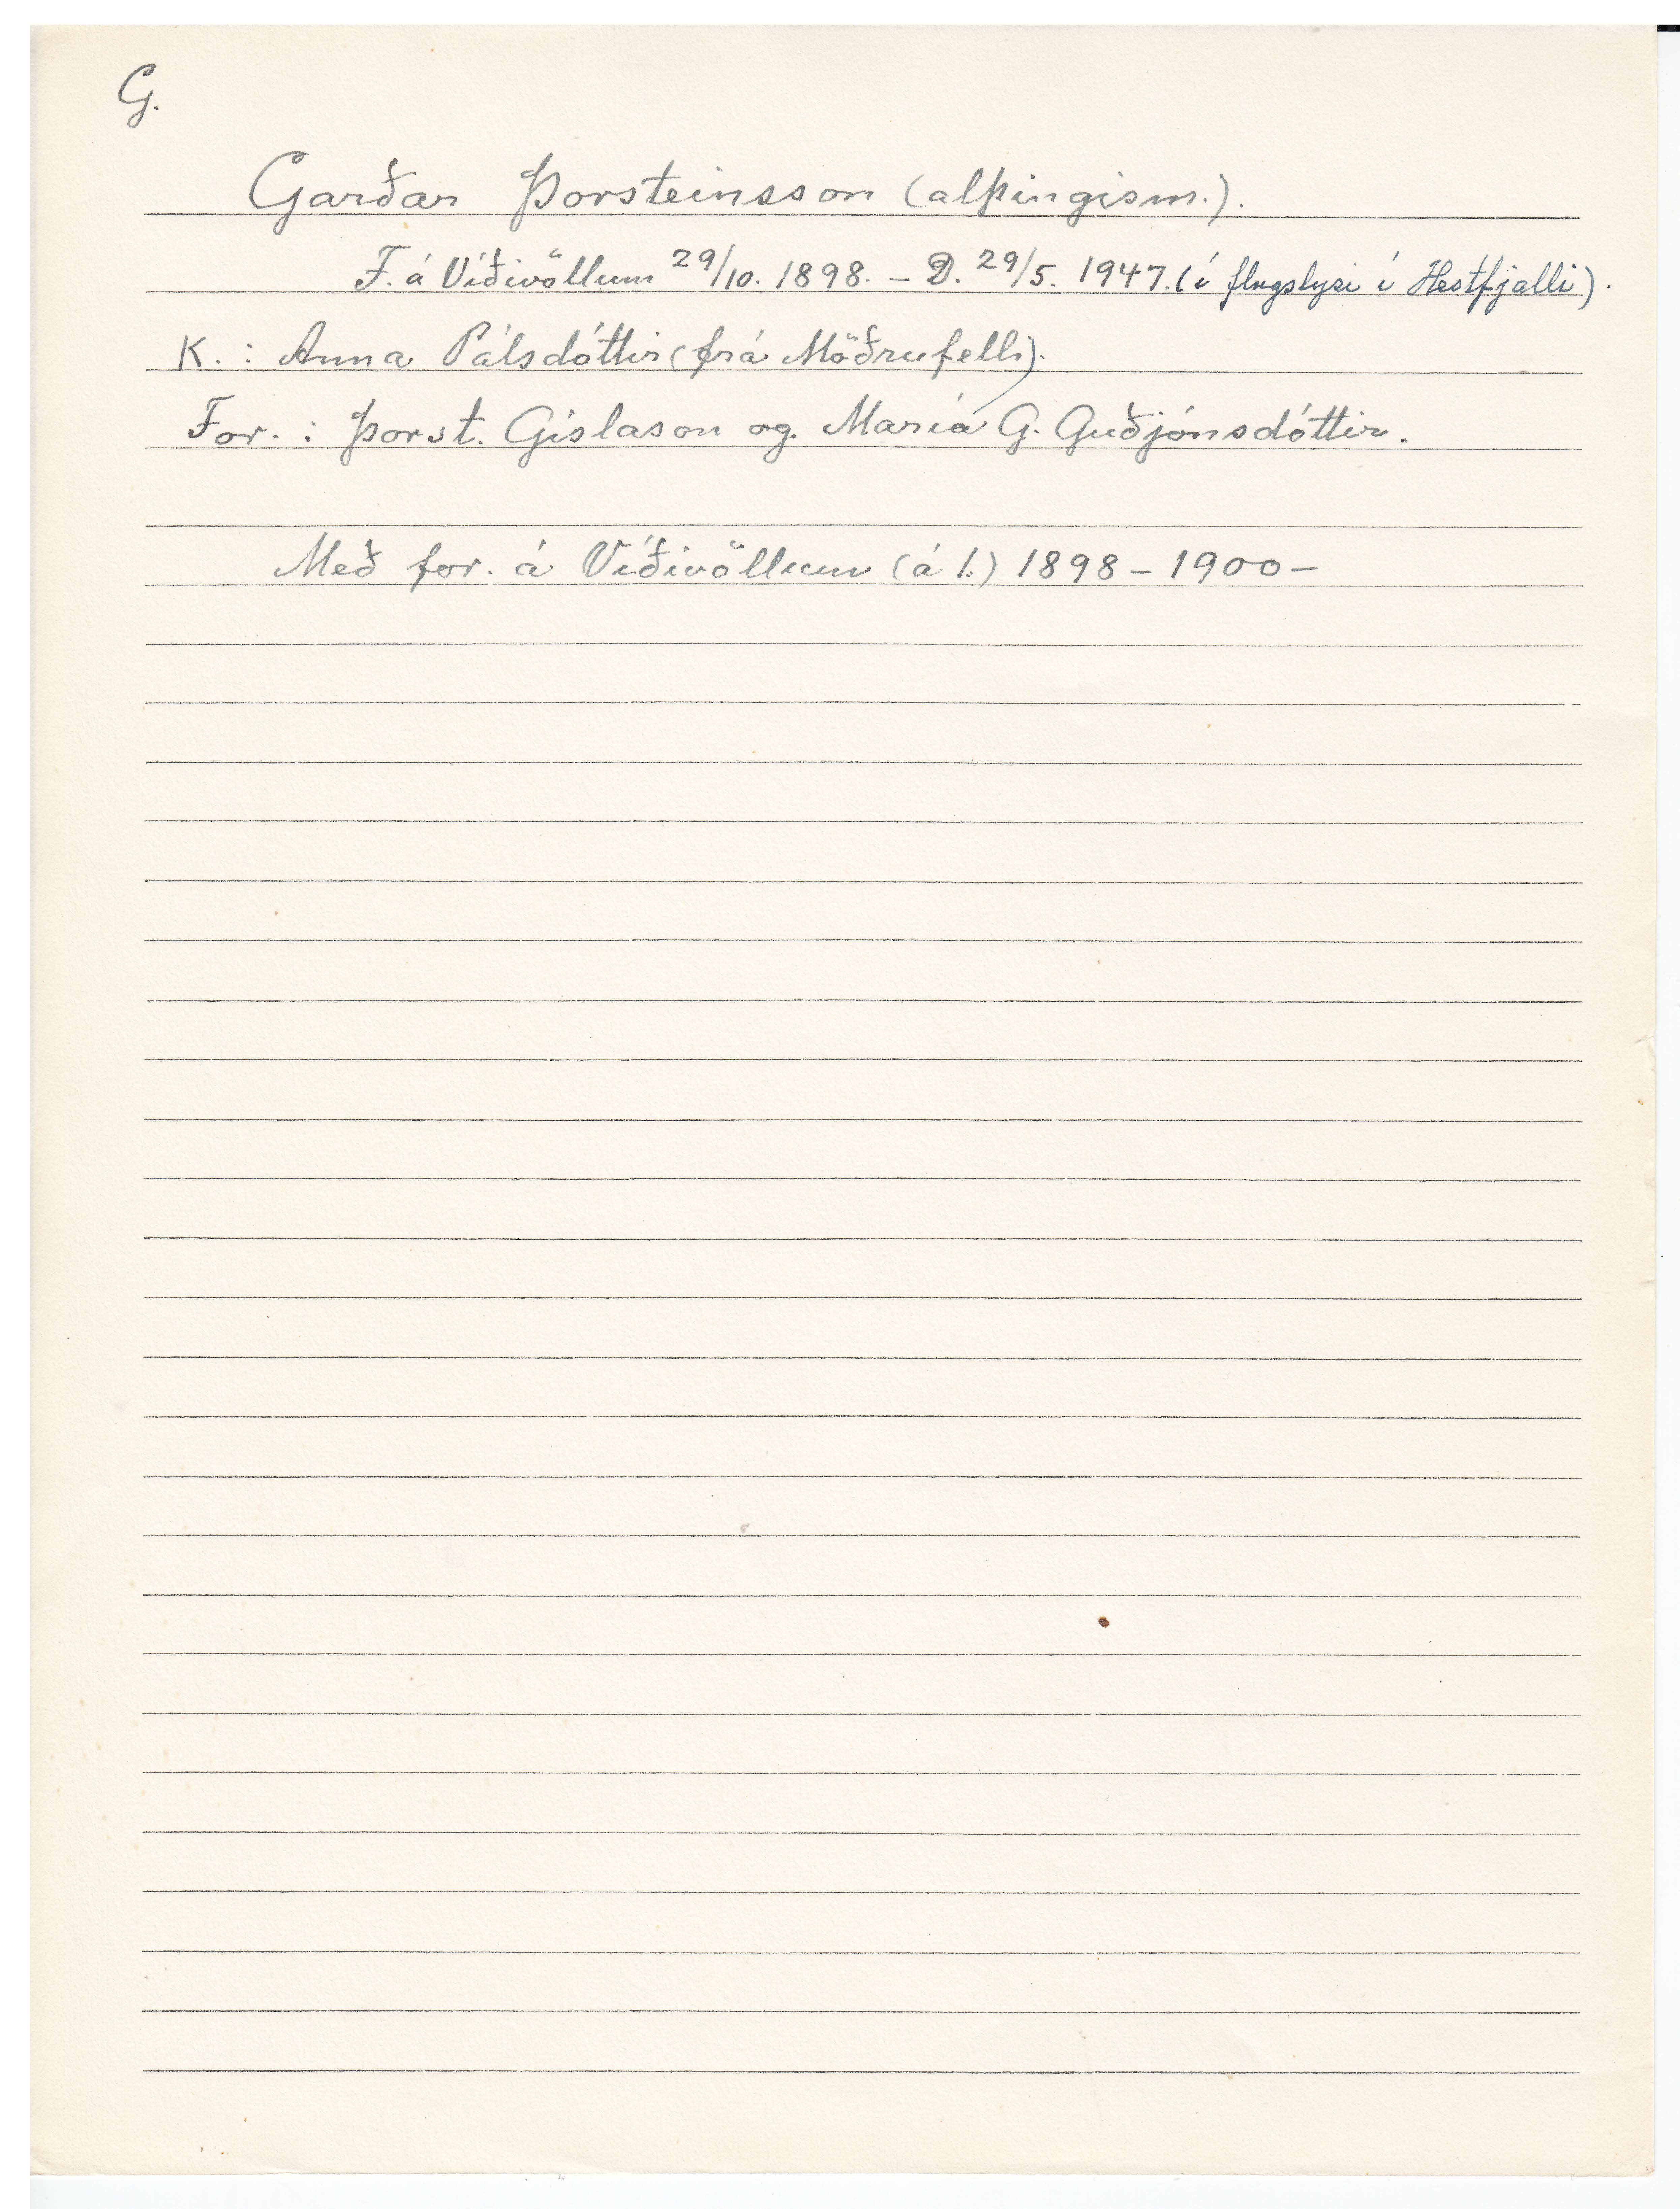 G.
Garðar Þorsteinsson (alþingism.).
F. á Víðivöllum 29/10. 1898. – D. 29/5. 1947. (í flugslysi í Hestfjalli).
K. : Anna Pálsdóttir (frá Möðrufelli).
For. : Þorst. Gíslason og María G. Guðjónsdóttir.
Með for. á Víðivöllum (á l.) 1898 – 1900 –